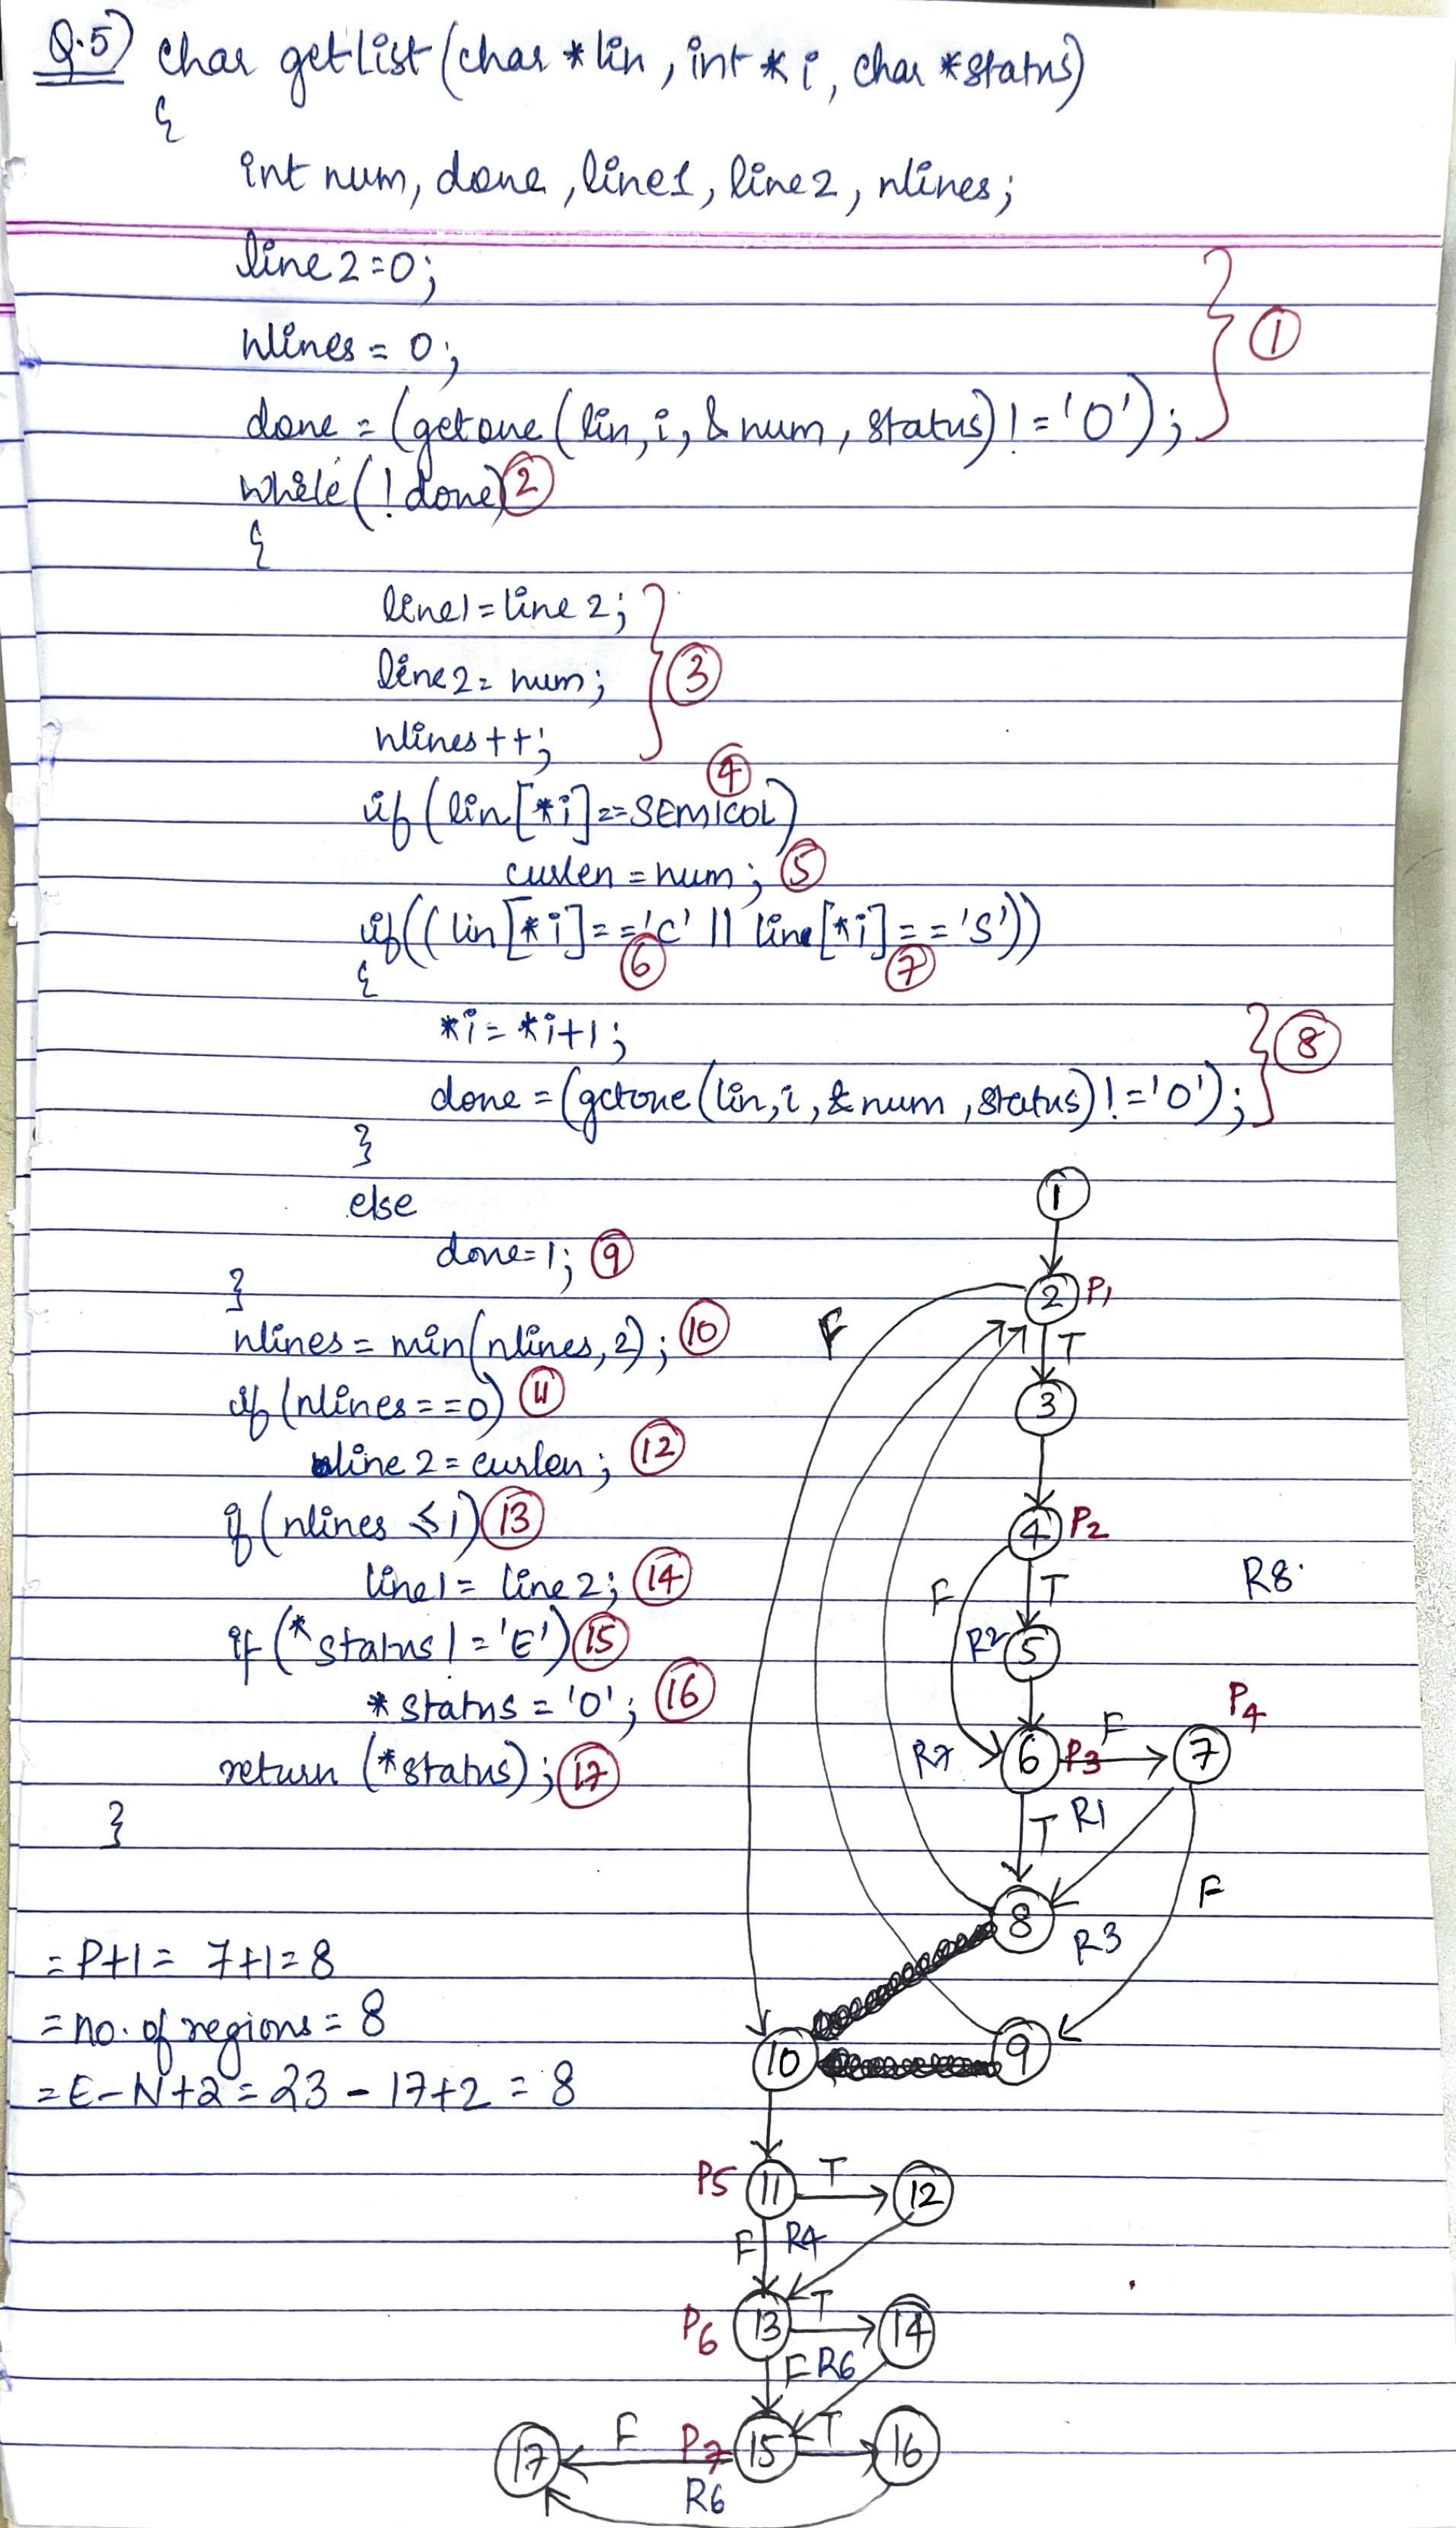 Q.5) char getList(char *lin, int *i, char *status)
{
int num, done, line1, line2, nlines;
line2=0;
nlines = 0;
①
done = (getone(lin, i, &num, status) != 'O');
while(!done) ②
{
line1 = line2;
line2 = num;
③
nlines++;
④
if (lin[*i]==SEMICOL)
curlen = num; ⑤
if((lin[*i]=='C' || line[*i]=='S'))
⑥ ⑦
{
*i = *i+1;
⑧
done = (getone(lin, i, &num, status) != 'O');
}
else
done=1; ⑨
}
nlines = min(nlines, 2); ⑩
if (nlines==0) ⑪
line2 = curlen; ⑫
if (nlines ≤ 1) ⑬
line1 = line2; ⑭
if (*status != 'E') ⑮
*status = 'O'; ⑯
return (*status); ⑰
}
= P+1 = 7+1=8
= no. of regions = 8
= E-N+2 = 23 - 17+2 = 8
1
2 P1
F
T
3
4 P2
R8
F T
R2 5
P4
R7 6 P3 F 7
T R1
F
8
R3
10 9
P5 11 T 12
F R4
P6 13 T 14
F R6
17 F P7 15 T 16
R6